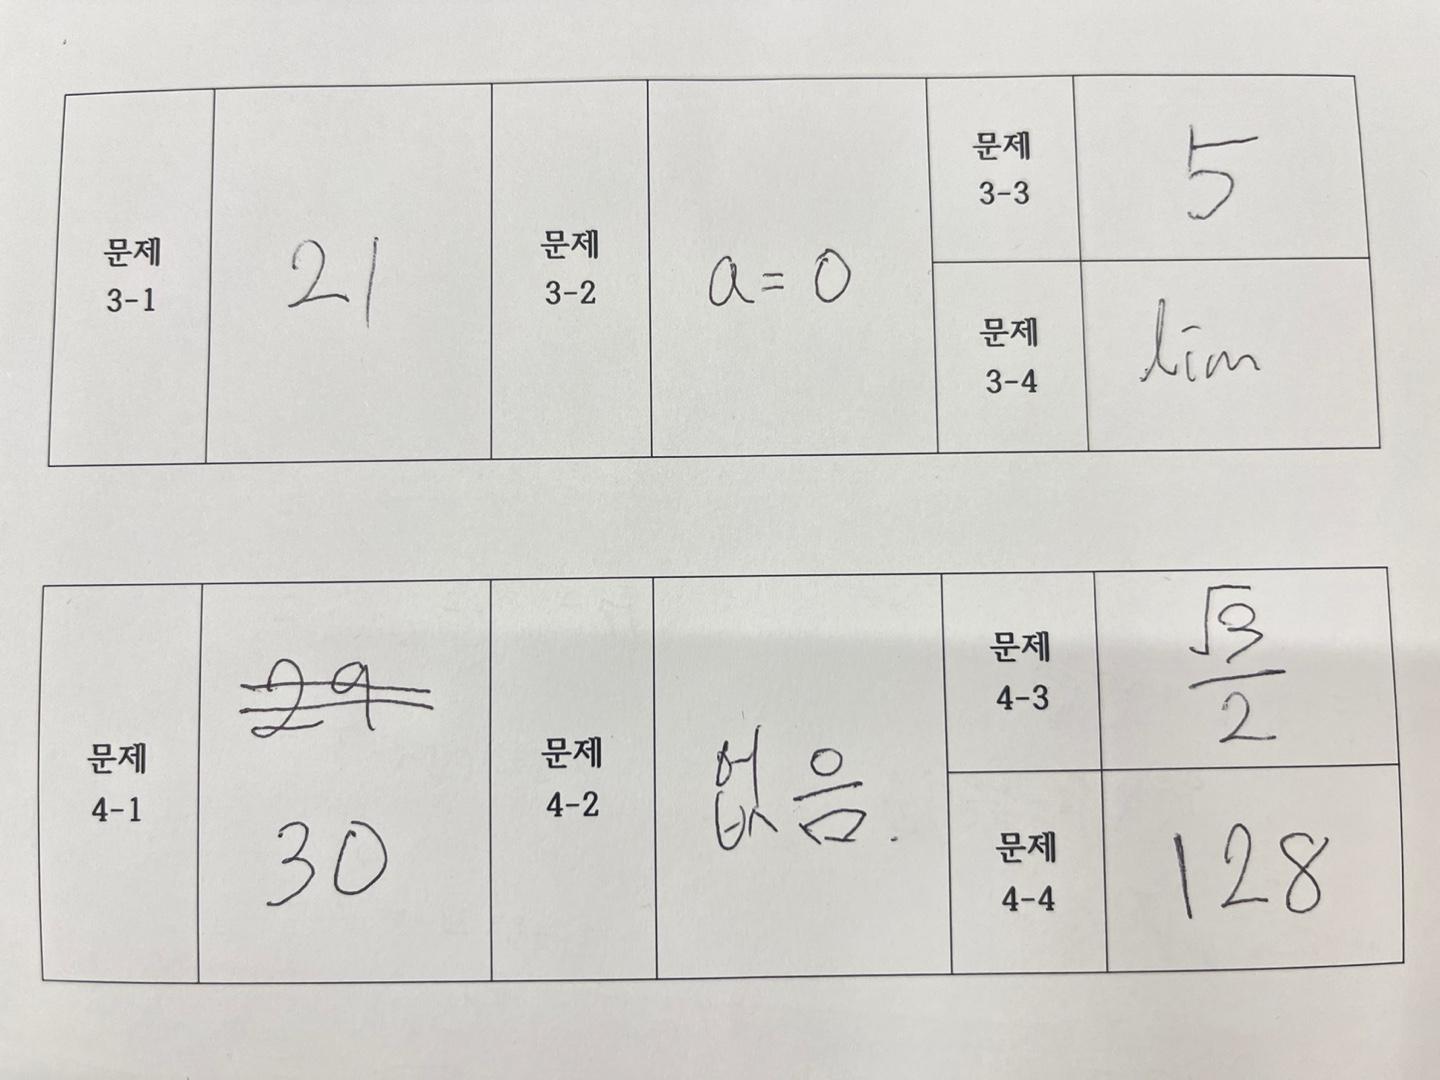 문제
3-1
21
문제
3-2
a = 0
문제
3-3
5
문제
3-4
lim
문제
4-1
29
30
문제
4-2
없음.
문제
4-3
√3/2
문제
4-4
128